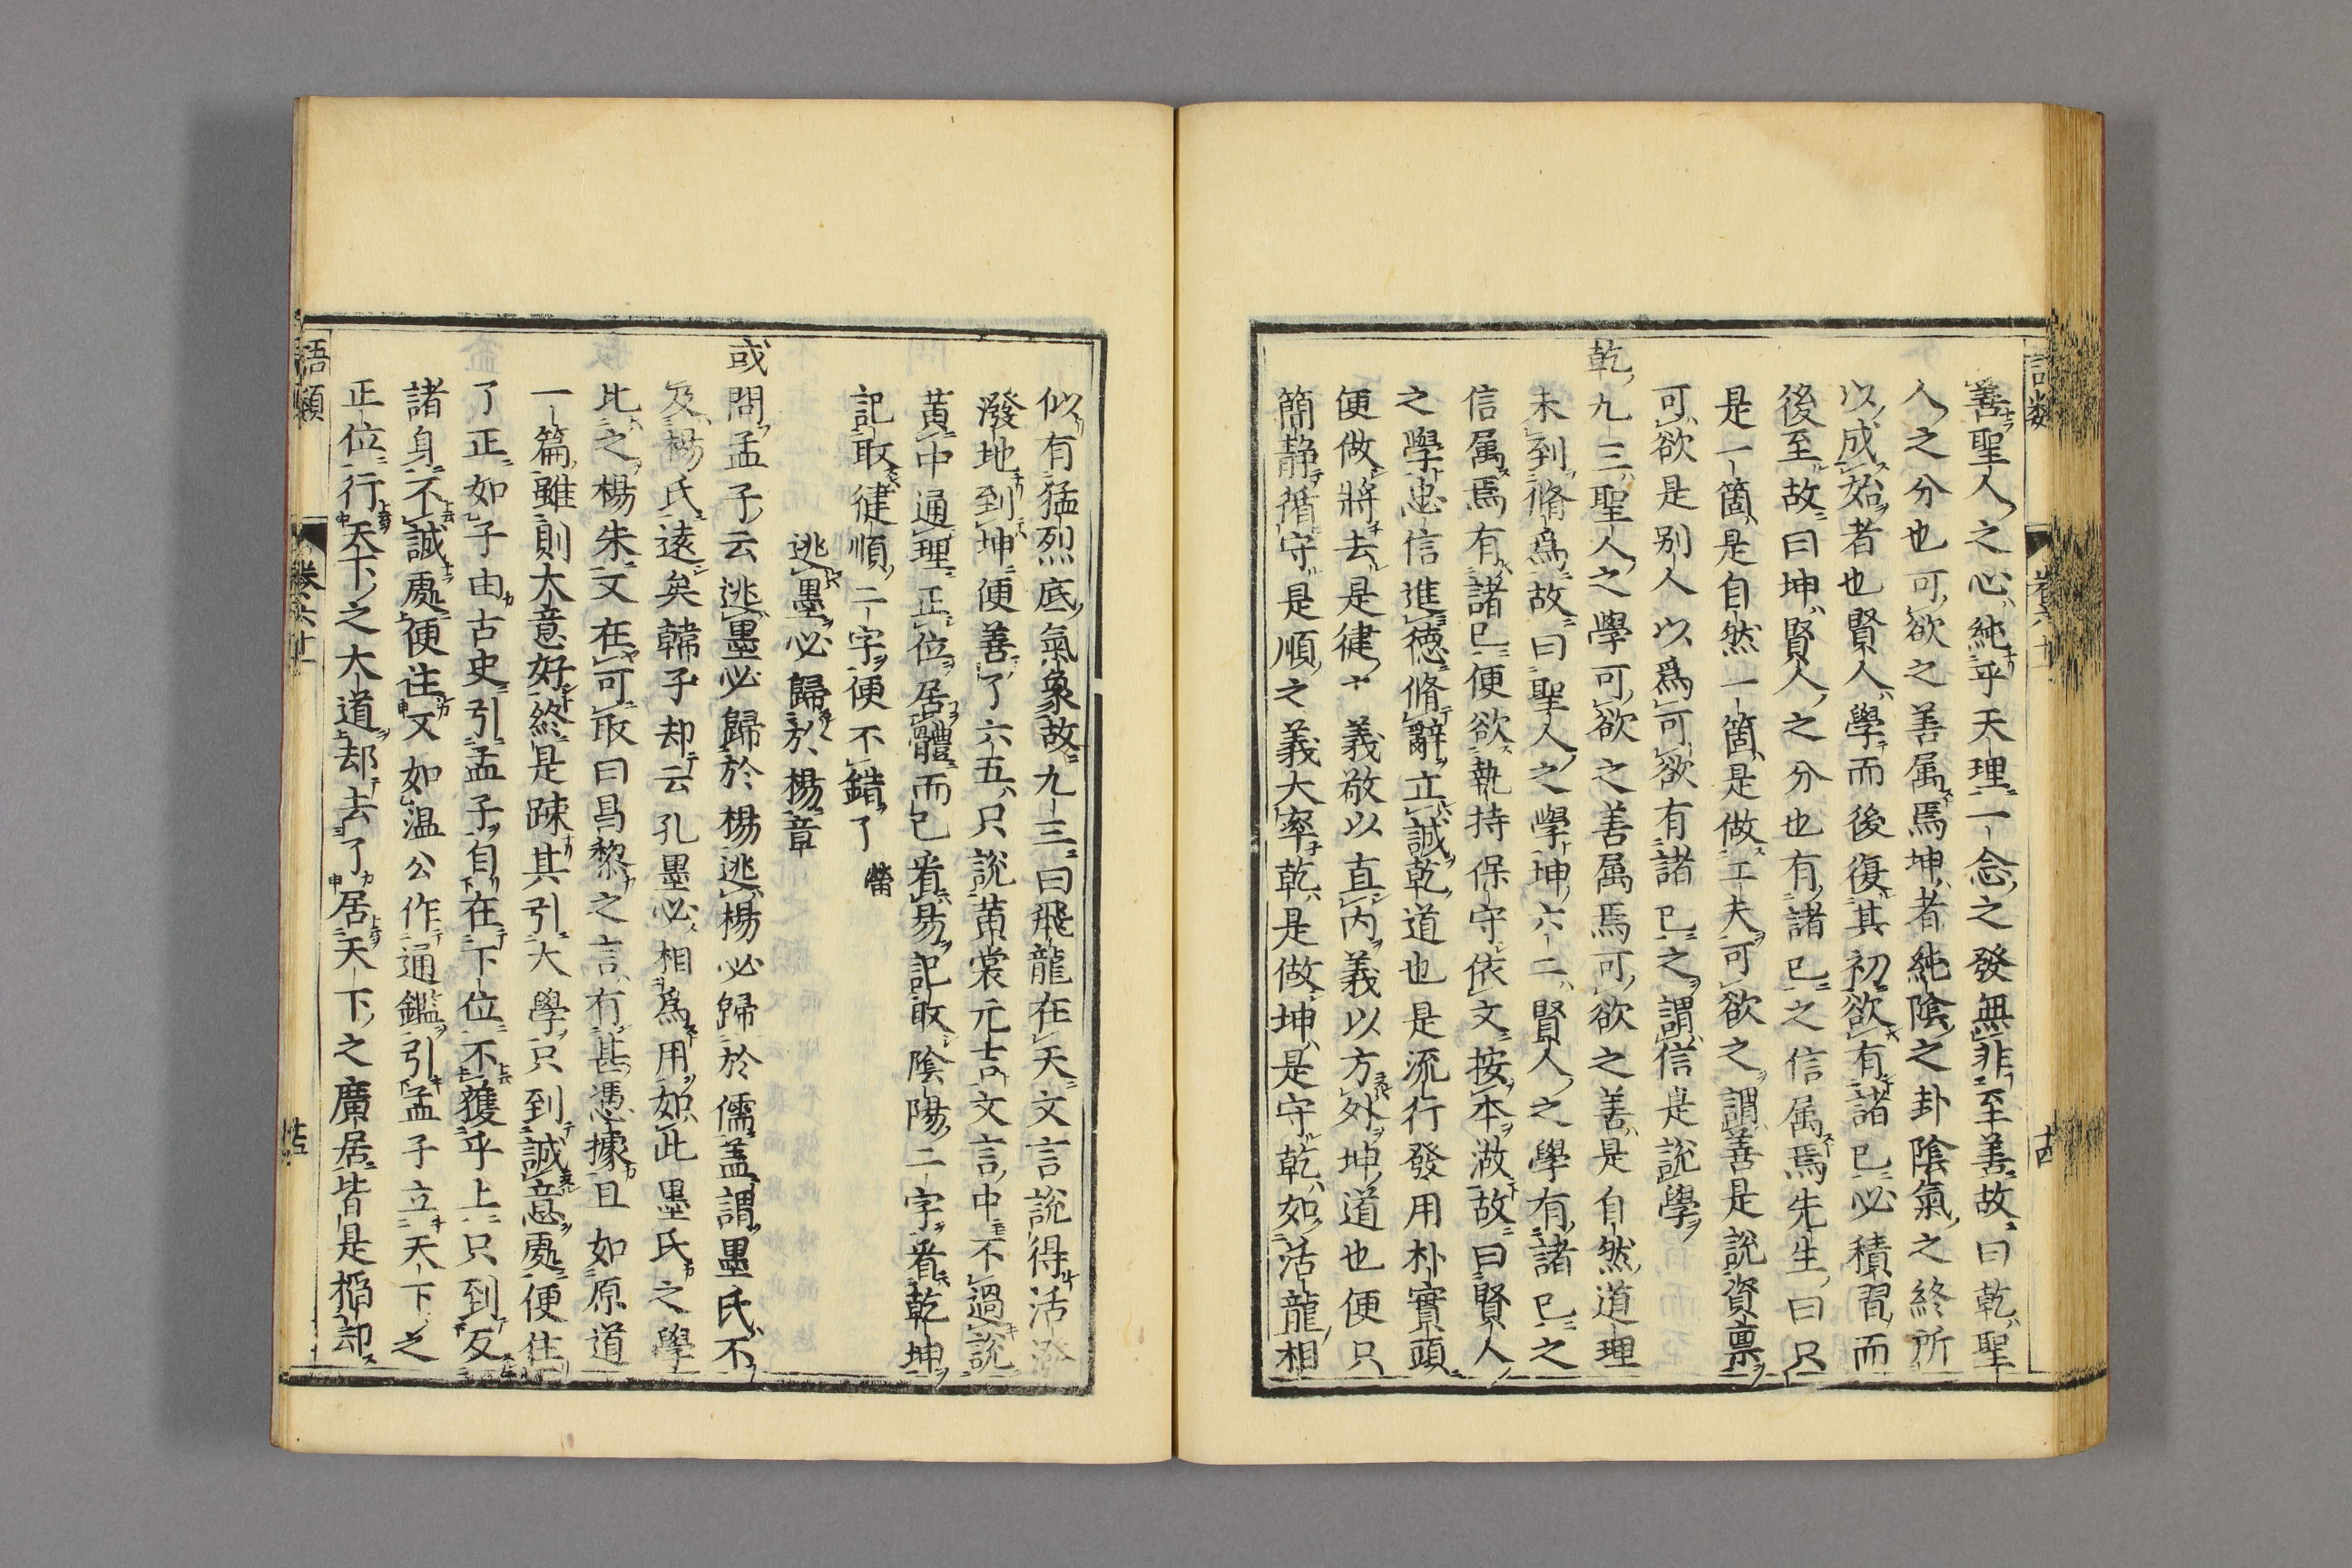 語類
卷六十一
十四
善聖人之心純乎天理一念之發無非至善故曰乾聖
人之分也可欲之善属焉坤者純陰之卦陰氣之終所
以成始者也賢人學而後復其初欲有諸已必積習而
後至故曰坤賢人之分也有諸已之信属焉先生曰只
是一箇是自然一箇是做工夫可欲之謂善是說資禀
可欲是别人以爲可欲有諸已之謂信是說學
乾九三聖人之學可欲之善属焉可欲之善是自然道理
未到脩爲故曰聖人之學坤六二賢人之學有諸已之
信属焉有諸已便欲執持保守依文按本做故曰賢人
之學忠信進德脩辭立誠乾道也是流行發用朴實頭
便做將去是健之義敬以直内義以方外坤道也便只
簡静循守是順之義大率乾是做坤是守乾如活龍相
似有猛烈底氣象故九三曰飛龍在天文言說得活潑
潑地到坤便善了六五只說黄裳元吉文言中不過說
黄中通理正位居體而已看易記取陰陽二字看乾坤
記取健順二字便不錯了 㽦
逃墨必歸於楊章
或問孟子云逃墨必歸於楊逃楊必歸於儒盖謂墨氏不
及楊氏逺矣韓子却云孔墨必相爲用如此墨氏之學
比之楊朱又在可取曰昌黎之言有甚憑據且如原道
一篇雖則大意好終是踈其引大學只到誠意處便住
了正如子由古史引孟子自在下位不獲乎上只到反
諸身不誠處便住又如温公作通鑑引孟子立天下之
正位行天下之大道却去了居天下之廣居皆是掐却
語類
卷六十一
十五